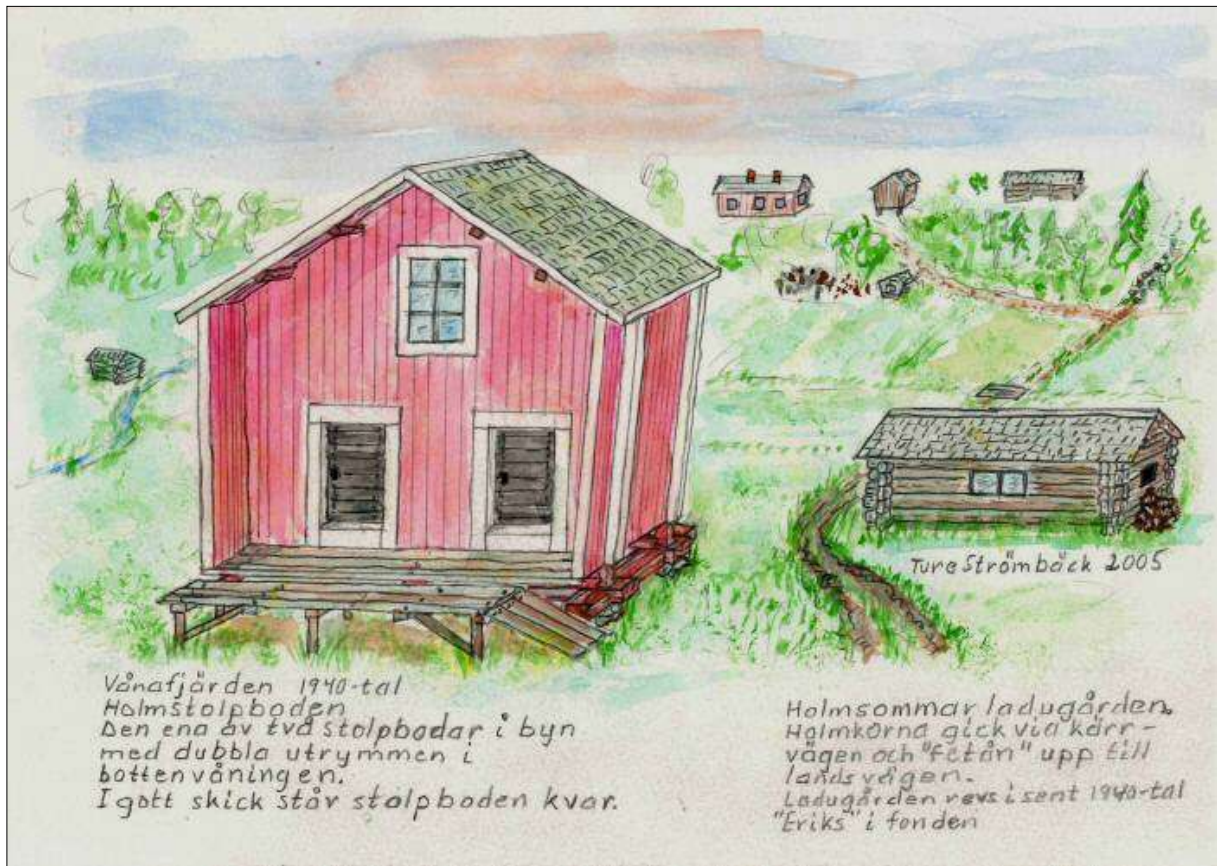 Ture Strömbäck 2005
Vånafjärden 1940-tal
Holmstolpboden
Den ena av två stolpbodar i byn
med dubbla utrymmen i
bottenvåningen.
I gott skick står stolpboden kvar.
Holmsommar ladugården.
Holmkorna gick via kärr-
vägen och "fetån" upp till
landsvägen.
Ladugården revs i sent 1940-tal
"Eriks" i fonden